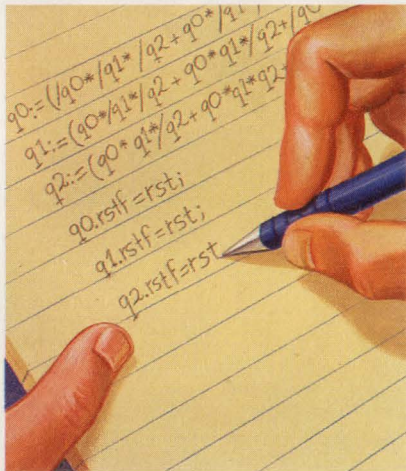 q0:=(/q0*/q1* /q2 + q0*/q1
q1:=(q0*/q1*/q2 + q0*q1*/q2+/q0
q2:=(q0* q1*/q2 + q0*q1*q2+
q0.rstf =rst;
q1.rstf=rst;
q2.rstf=rst